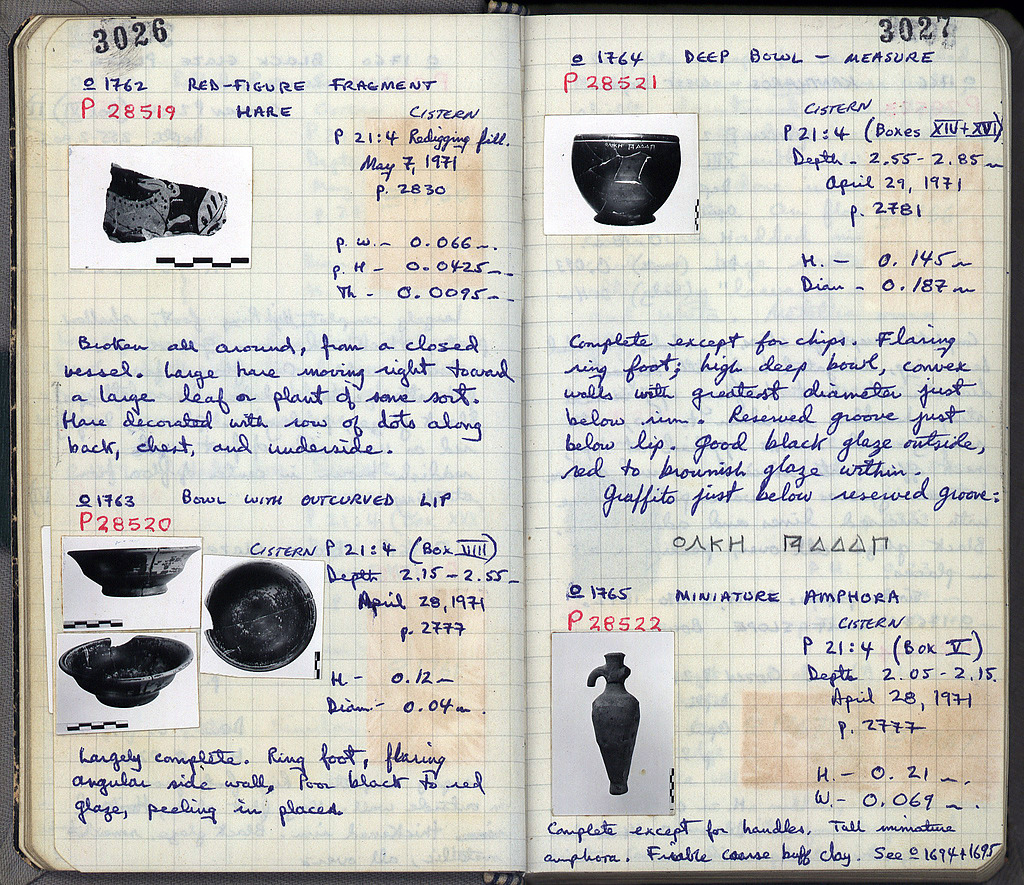 3026
o 1762 RED-FIGURE FRAGMENT
P 28519 HARE
CISTERN
P 21:4 Redigging fill.
May 7, 1971
p. 2830
p. W. - 0.066 m.
p. H - 0.0425 m
Th - 0.0095 m
Broken all around, from a closed
vessel. Large hare moving right toward
a large leaf or plant of some sort.
Hare decorated with row of dots along
back, chest, and underside.
o 1763 BOWL WITH OUTCURVED LIP
P28520
CISTERN P 21:4 (Box IIII)
Depth 2.15 - 2.55 m
April 28, 1971
p. 2777
H - 0.12 m
Diam. - 0.04 m.
Largely complete. Ring foot, flaring
angular side wall. Poor black to red
glaze, peeling in places.
3027
o 1764 DEEP BOWL - MEASURE
P 28521
CISTERN
P 21:4 (Boxes XIV + XVI)
Depth - 2.55 - 2.85 m
April 29, 1971
p. 2781
H. - 0.145 m
Diam - 0.187 m
Complete except for chips. Flaring
ring foot; high deep bowl, convex
walls with greatest diameter just
below rim. Reserved groove just
below lip. Good black glaze outside,
red to brownish glaze within.
Graffito just below reserved groove:
ΟΛΚΗ 𐅄ΔΔΔΠ
o 1765 MINIATURE AMPHORA
P 28522
CISTERN
P 21:4 (Box V)
Depth 2.05 - 2.15
April 28, 1971
p. 2777
H. - 0.21 m.
W. - 0.069 m.
Complete except for handles. Tall miniature
amphora. Friable coarse buff clay. See o 1694 + 1695